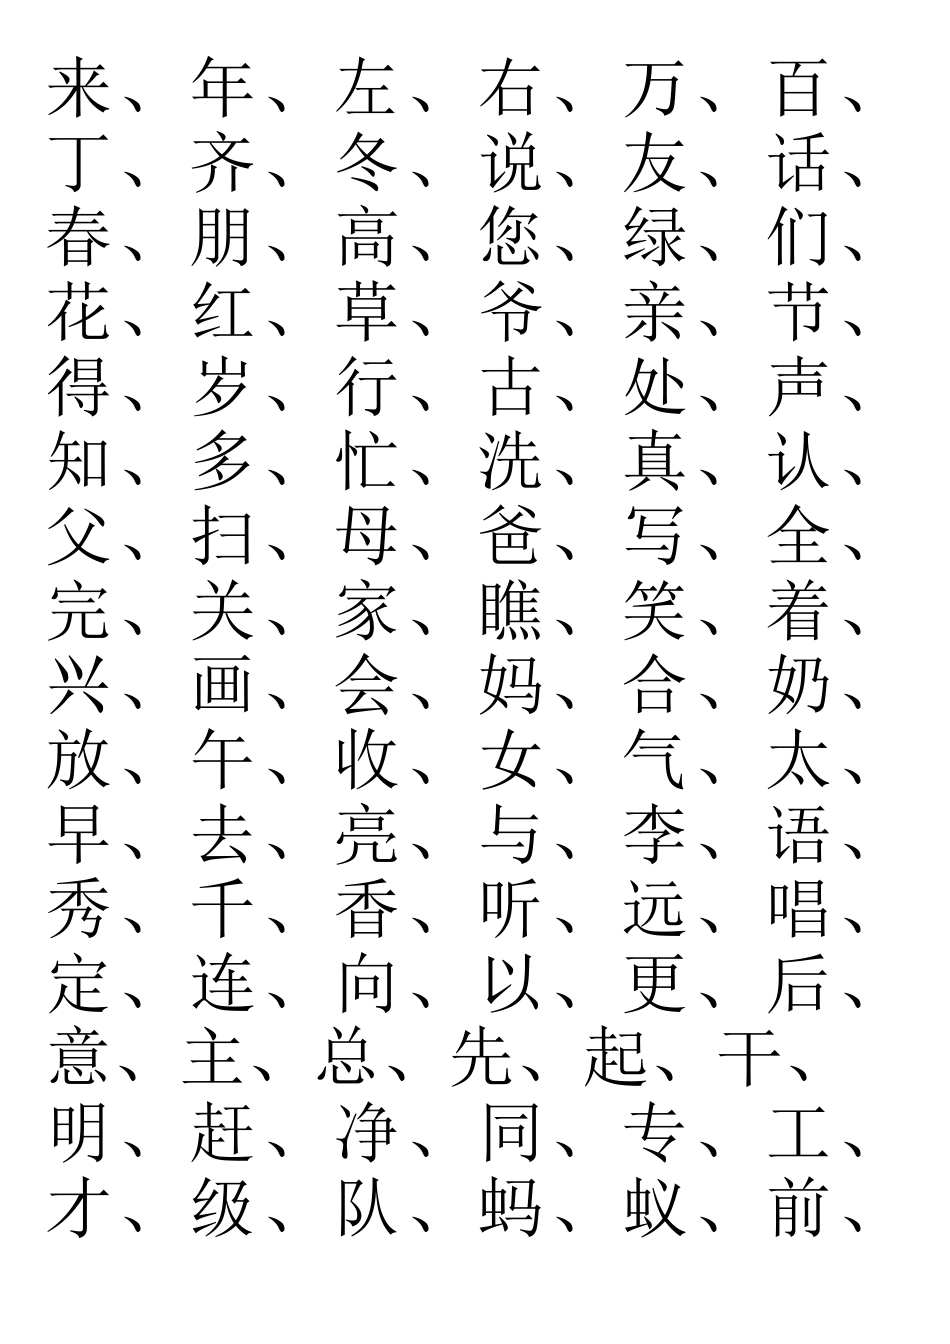 来、年、左、右、万、百、
丁、齐、冬、说、友、话、
春、朋、高、您、绿、们、
花、红、草、爷、亲、节、
得、岁、行、古、处、声、
知、多、忙、洗、真、认、
父、扫、母、爸、写、全、
完、关、家、瞧、笑、着、
兴、画、会、妈、合、奶、
放、午、收、女、气、太、
早、去、亮、与、李、语、
秀、千、香、听、远、唱、
定、连、向、以、更、后、
意、主、总、先、起、干、
明、赶、净、同、专、工、
才、级、队、蚂、蚁、前、